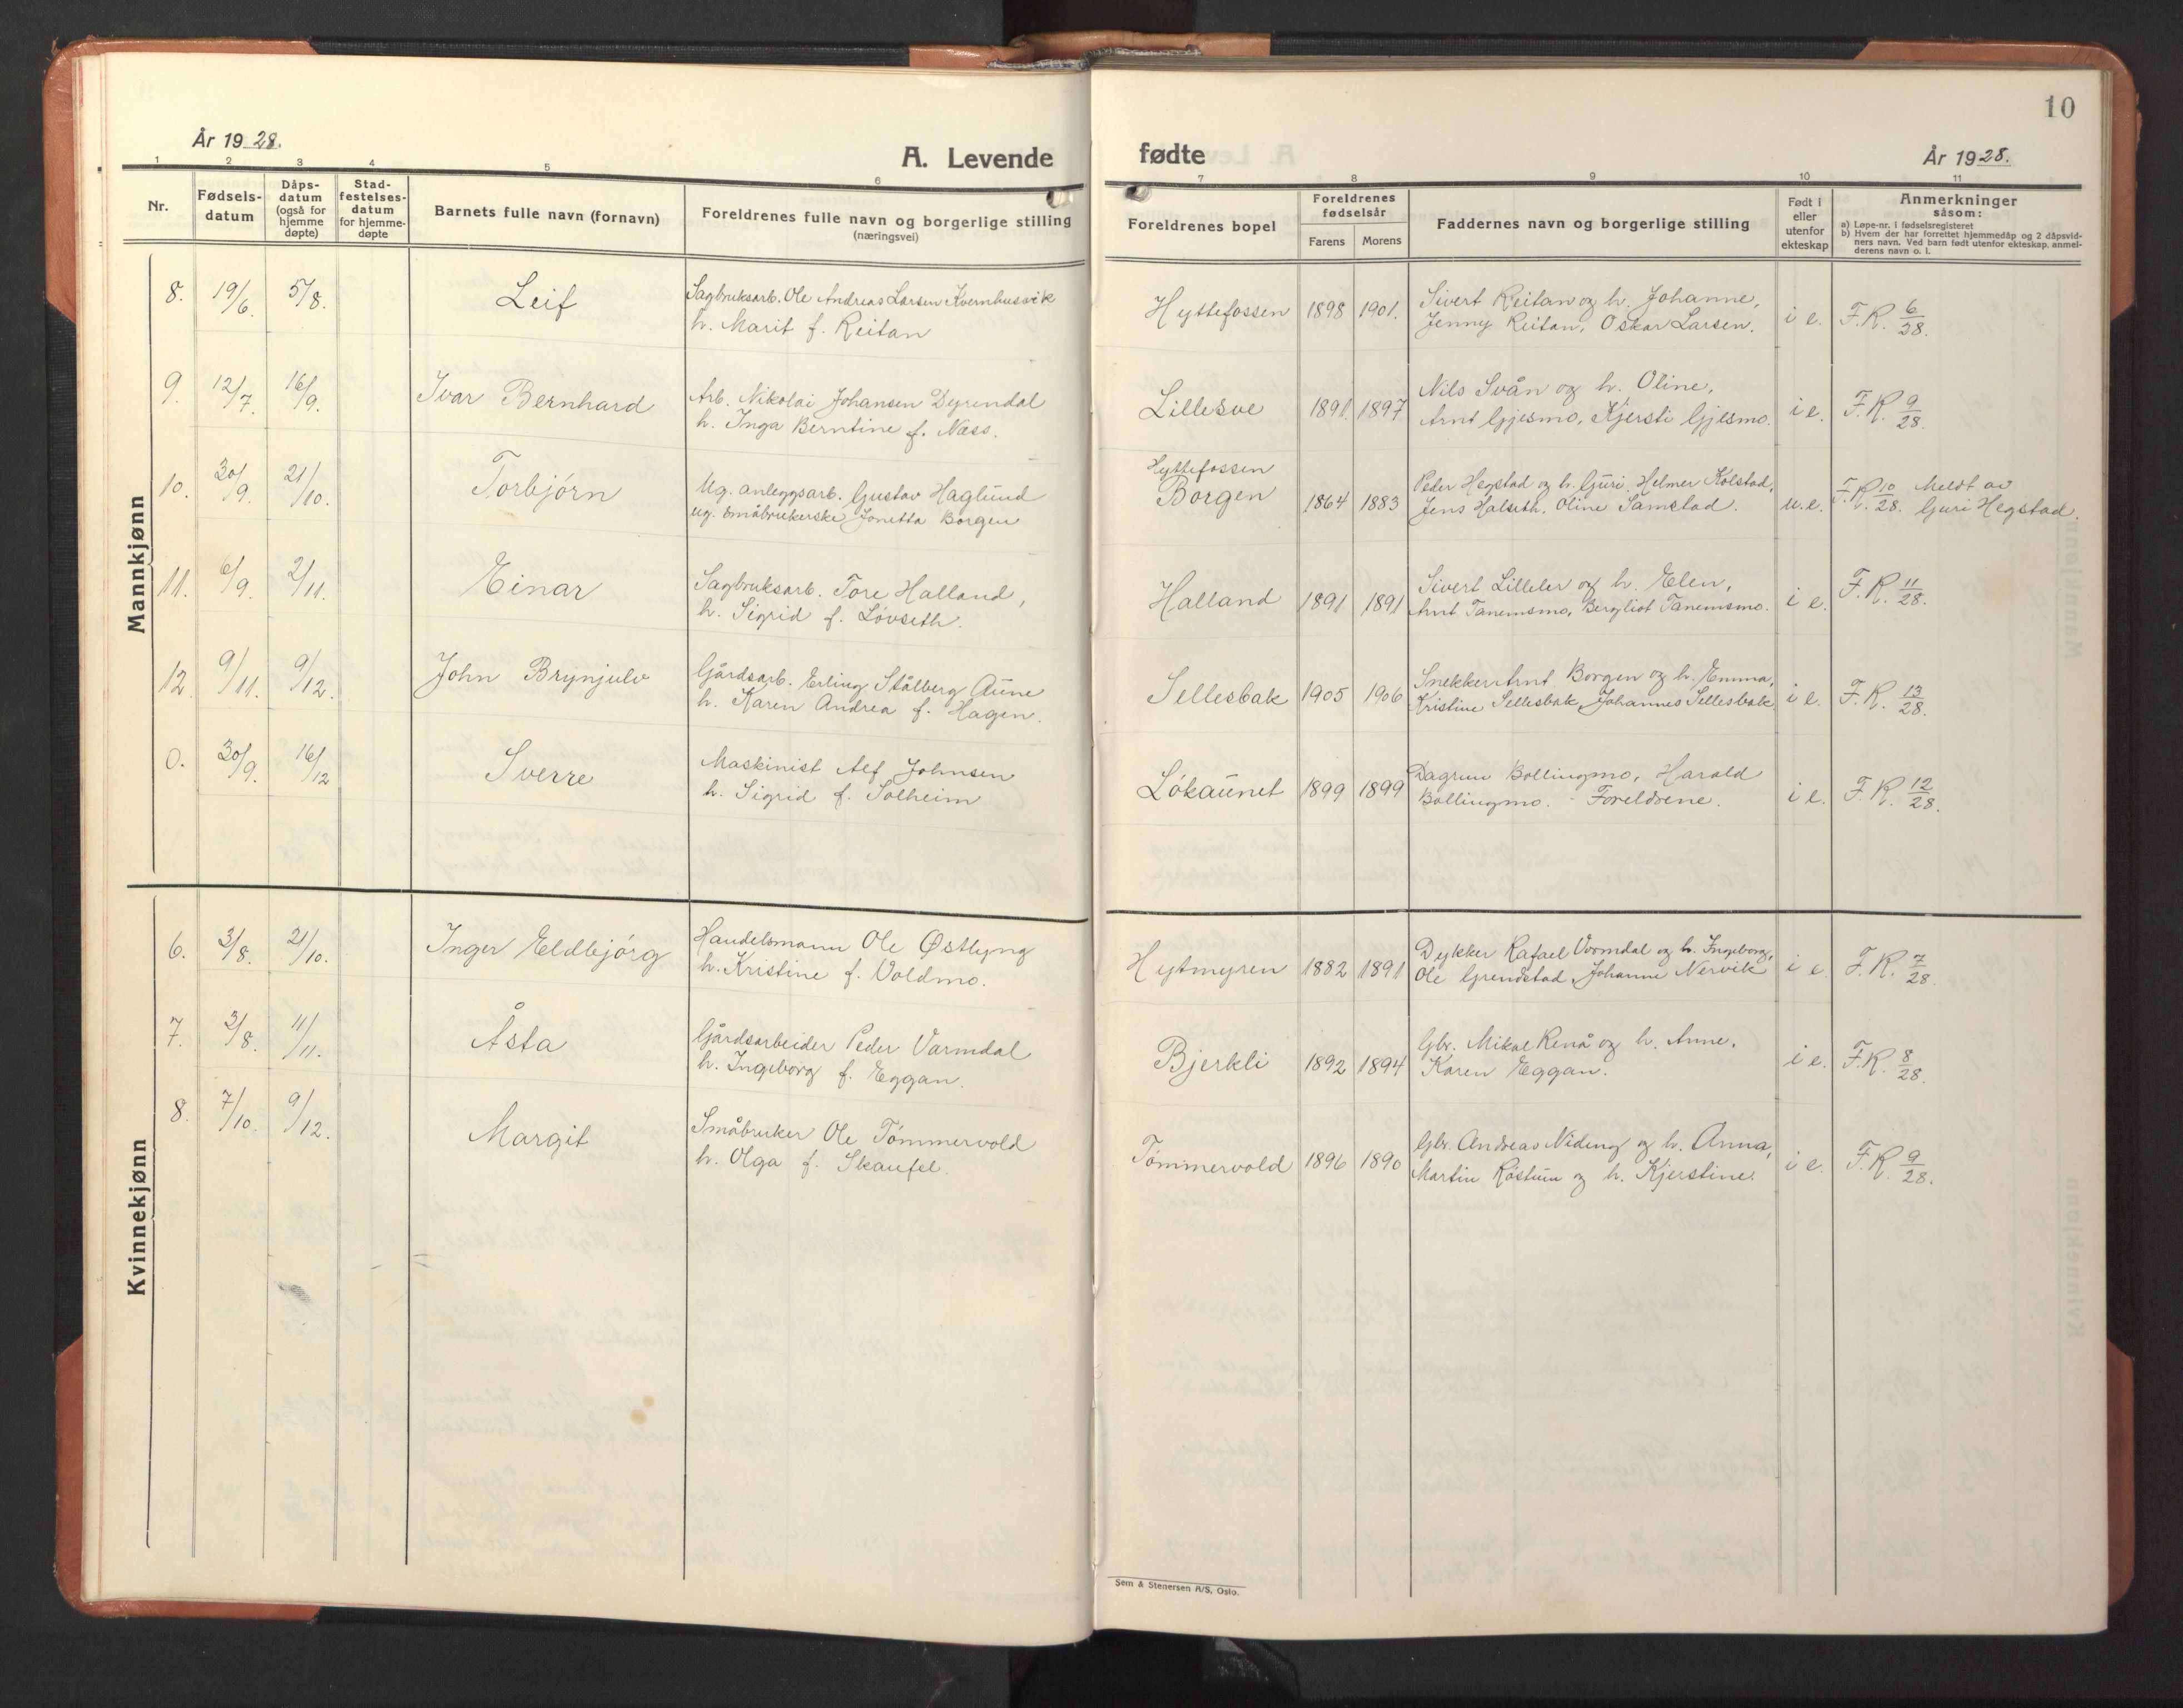 10
År 1928.
A. Levende
fødte
År 1928.
1 2 3 4 5 6 7 8 9 10 11
Nr.
Fødsels-
datum
Dåps-
datum
(også for
hjemme
døpte)
Stad-
festelses-
datum
for hjemme-
døpte
Barnets fulle navn (fornavn)
Foreldrenes fulle navn og borgerlige stilling
(næringsvei)
Foreldrenes bopel
Foreldrenes
fødselsår
Farens Morens
Faddernes navn og borgerlige stilling
Født i
eller
utenfor
ekteskap
Anmerkninger
såsom:
a) Løpe-nr. i fødselsregisteret
b) Hvem der har forrettet hjemmedåp og 2 dåpsvid-
ners navn. Ved barn født utenfor ekteskap, anmel-
derens navn o. l.
Mannkjønn
8. 19/6. 5/8. Leif
Sagbruksarb. Ole Andreas Larsen Kvernhusvik
h. Marit f. Reitan
Hyttefossen 1898 1901.
Sivert Reitan og h. Johanne,
Jenny Reitan, Oskar Larsen.
i e. F.R. 6/28.
9. 12/7. 16/9. Ivar Bernhard
Arb. Nikolai Johansen Dyrendal
h. Inga Berntine f. Næss.
Lillesve 1891. 1897
Nils Svån og h. Oline,
Arnt Gjesmo, Kjersti Gjesmo.
i e. F.R. 9/28.
10. 30/9. 21/10. Torbjörn
Ug. anleggsarb. Gustav Haglund
ug. småbrukerske Jonetta Borgen
Hyttefossen
Borgen 1864 1883
Peder Hegstad og h. Guri, Helmer Kolstad,
Jens Halseth, Oline Samstad.
u.e. F.R. 10/28. Meldt av
Guri Hegstad.
11. 6/9. 2/11. Einar
Sagbruksarb. Tore Halland,
h. Sigrid f. Lövseth.
Halland 1891 1891
Sivert Lilleler og h. Elen,
Arnt Tanemsmo, Bergliot Tanemsmo.
i e. F.R. 11/28.
12. 9/11. 9/12. John Brynjulv
Gårdsarb. Erling Stålberg Aune
h. Karen Andrea f. Hagen.
Sellesbak 1905 1906
Snekker Arnt Borgen og h. Emma,
Kristine Sellesbak, Johannes Sellesbak
i e. F.R. 13/28.
0. 30/9. 16/12 Sverre
Maskinist Alf Johnsen
h. Sigrid f. Solheim
Lökaunet 1899 1899
Dagrun Bollingmo, Harald
Bollingmo. - Foreldrene.
i e. F.R. 12/28.
Kvinnekjønn
6. 3/8. 21/10. Inger Eldbjörg
Handelsmann Ole Østlyng
h. Kristine f. Voldmo.
Hytmyren 1882 1891
Dykker Rafael Vormdal og h. Ingeborg,
Ole Grendstad, Johanne Nervik
i e. F.R. 7/28.
7. 3/8. 11/11. Åsta
Gårdsarbeider Peder Varmdal
h. Ingeborg f. Eggan.
Bjerkli 1892 1894
Gbr. Mikal Renå og h. Anne.
Karen Eggan.
i e. F.R. 8/28.
8. 7/10. 9/12. Margit
Småbruker Ole Tömmervold
h. Olga f. Skaufel.
Tömmervold 1896 1890
Gbr. Andreas Nideng og h. Anna,
Martin Röstum og h. Kjerstine.
i e. F.R. 9/28.
Sem & Stenersen A/S, Oslo.